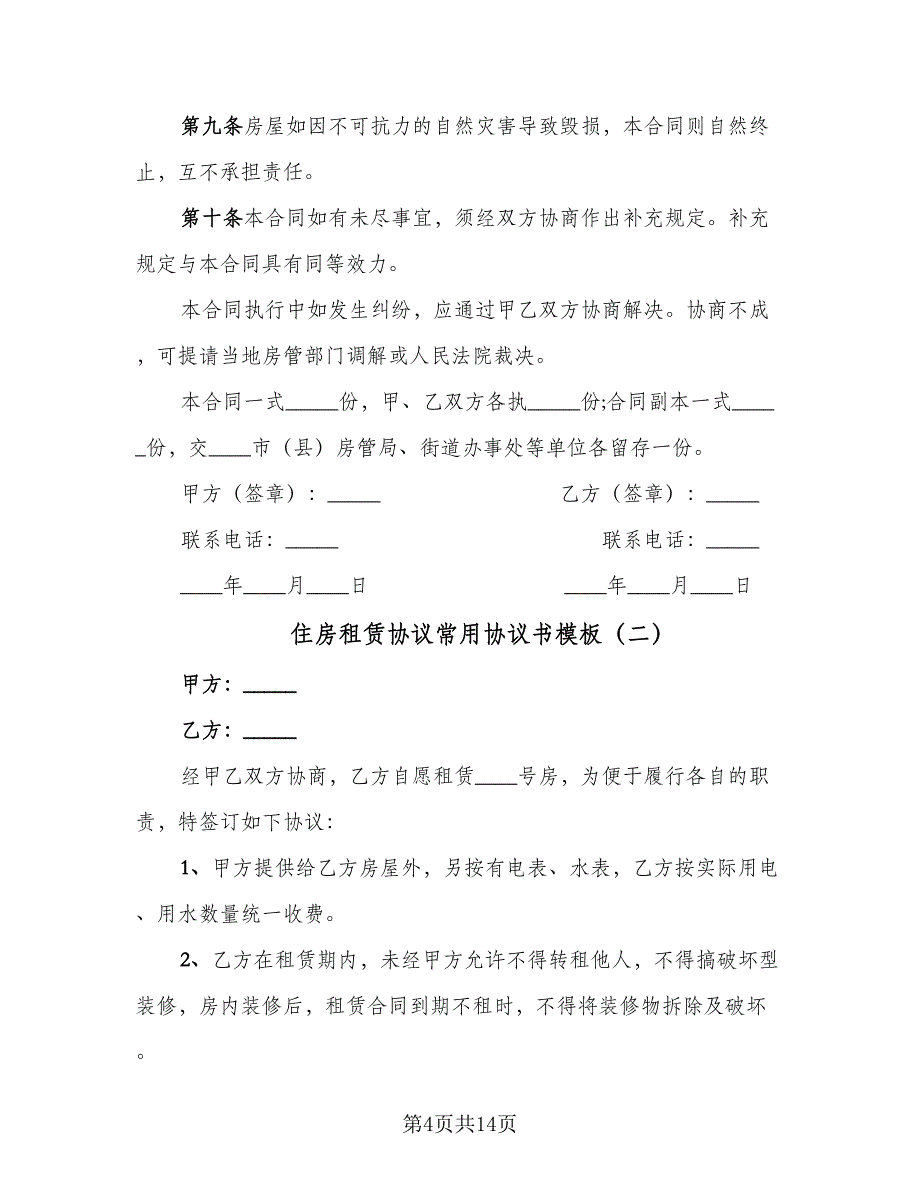 第九条房屋如因不可抗力的自然灾害导致毁损，本合同则自然终
止，互不承担责任。
第十条本合同如有未尽事宜，须经双方协商作出补充规定。补充
规定与本合同具有同等效力。
本合同执行中如发生纠纷，应通过甲乙双方协商解决。协商不成
，可提请当地房管部门调解或人民法院裁决。
本合同一式_____份，甲、乙双方各执_____份;合同副本一式____
_份，交____市（县）房管局、街道办事处等单位各留存一份。
甲方（签章）：_____ 乙方（签章）：_____
联系电话：_____ 联系电话：_____
____年____月____日 ____年____月____日
住房租赁协议常用协议书模板（二）
甲方：_____
乙方：_____
经甲乙双方协商，乙方自愿租赁____号房，为便于履行各自的职
责，特签订如下协议：
1、甲方提供给乙方房屋外，另按有电表、水表，乙方按实际用电
、用水数量统一收费。
2、乙方在租赁期内，未经甲方允许不得转租他人，不得搞破坏型
装修，房内装修后，租赁合同到期不租时，不得将装修物拆除及破坏
。
第4页共14页